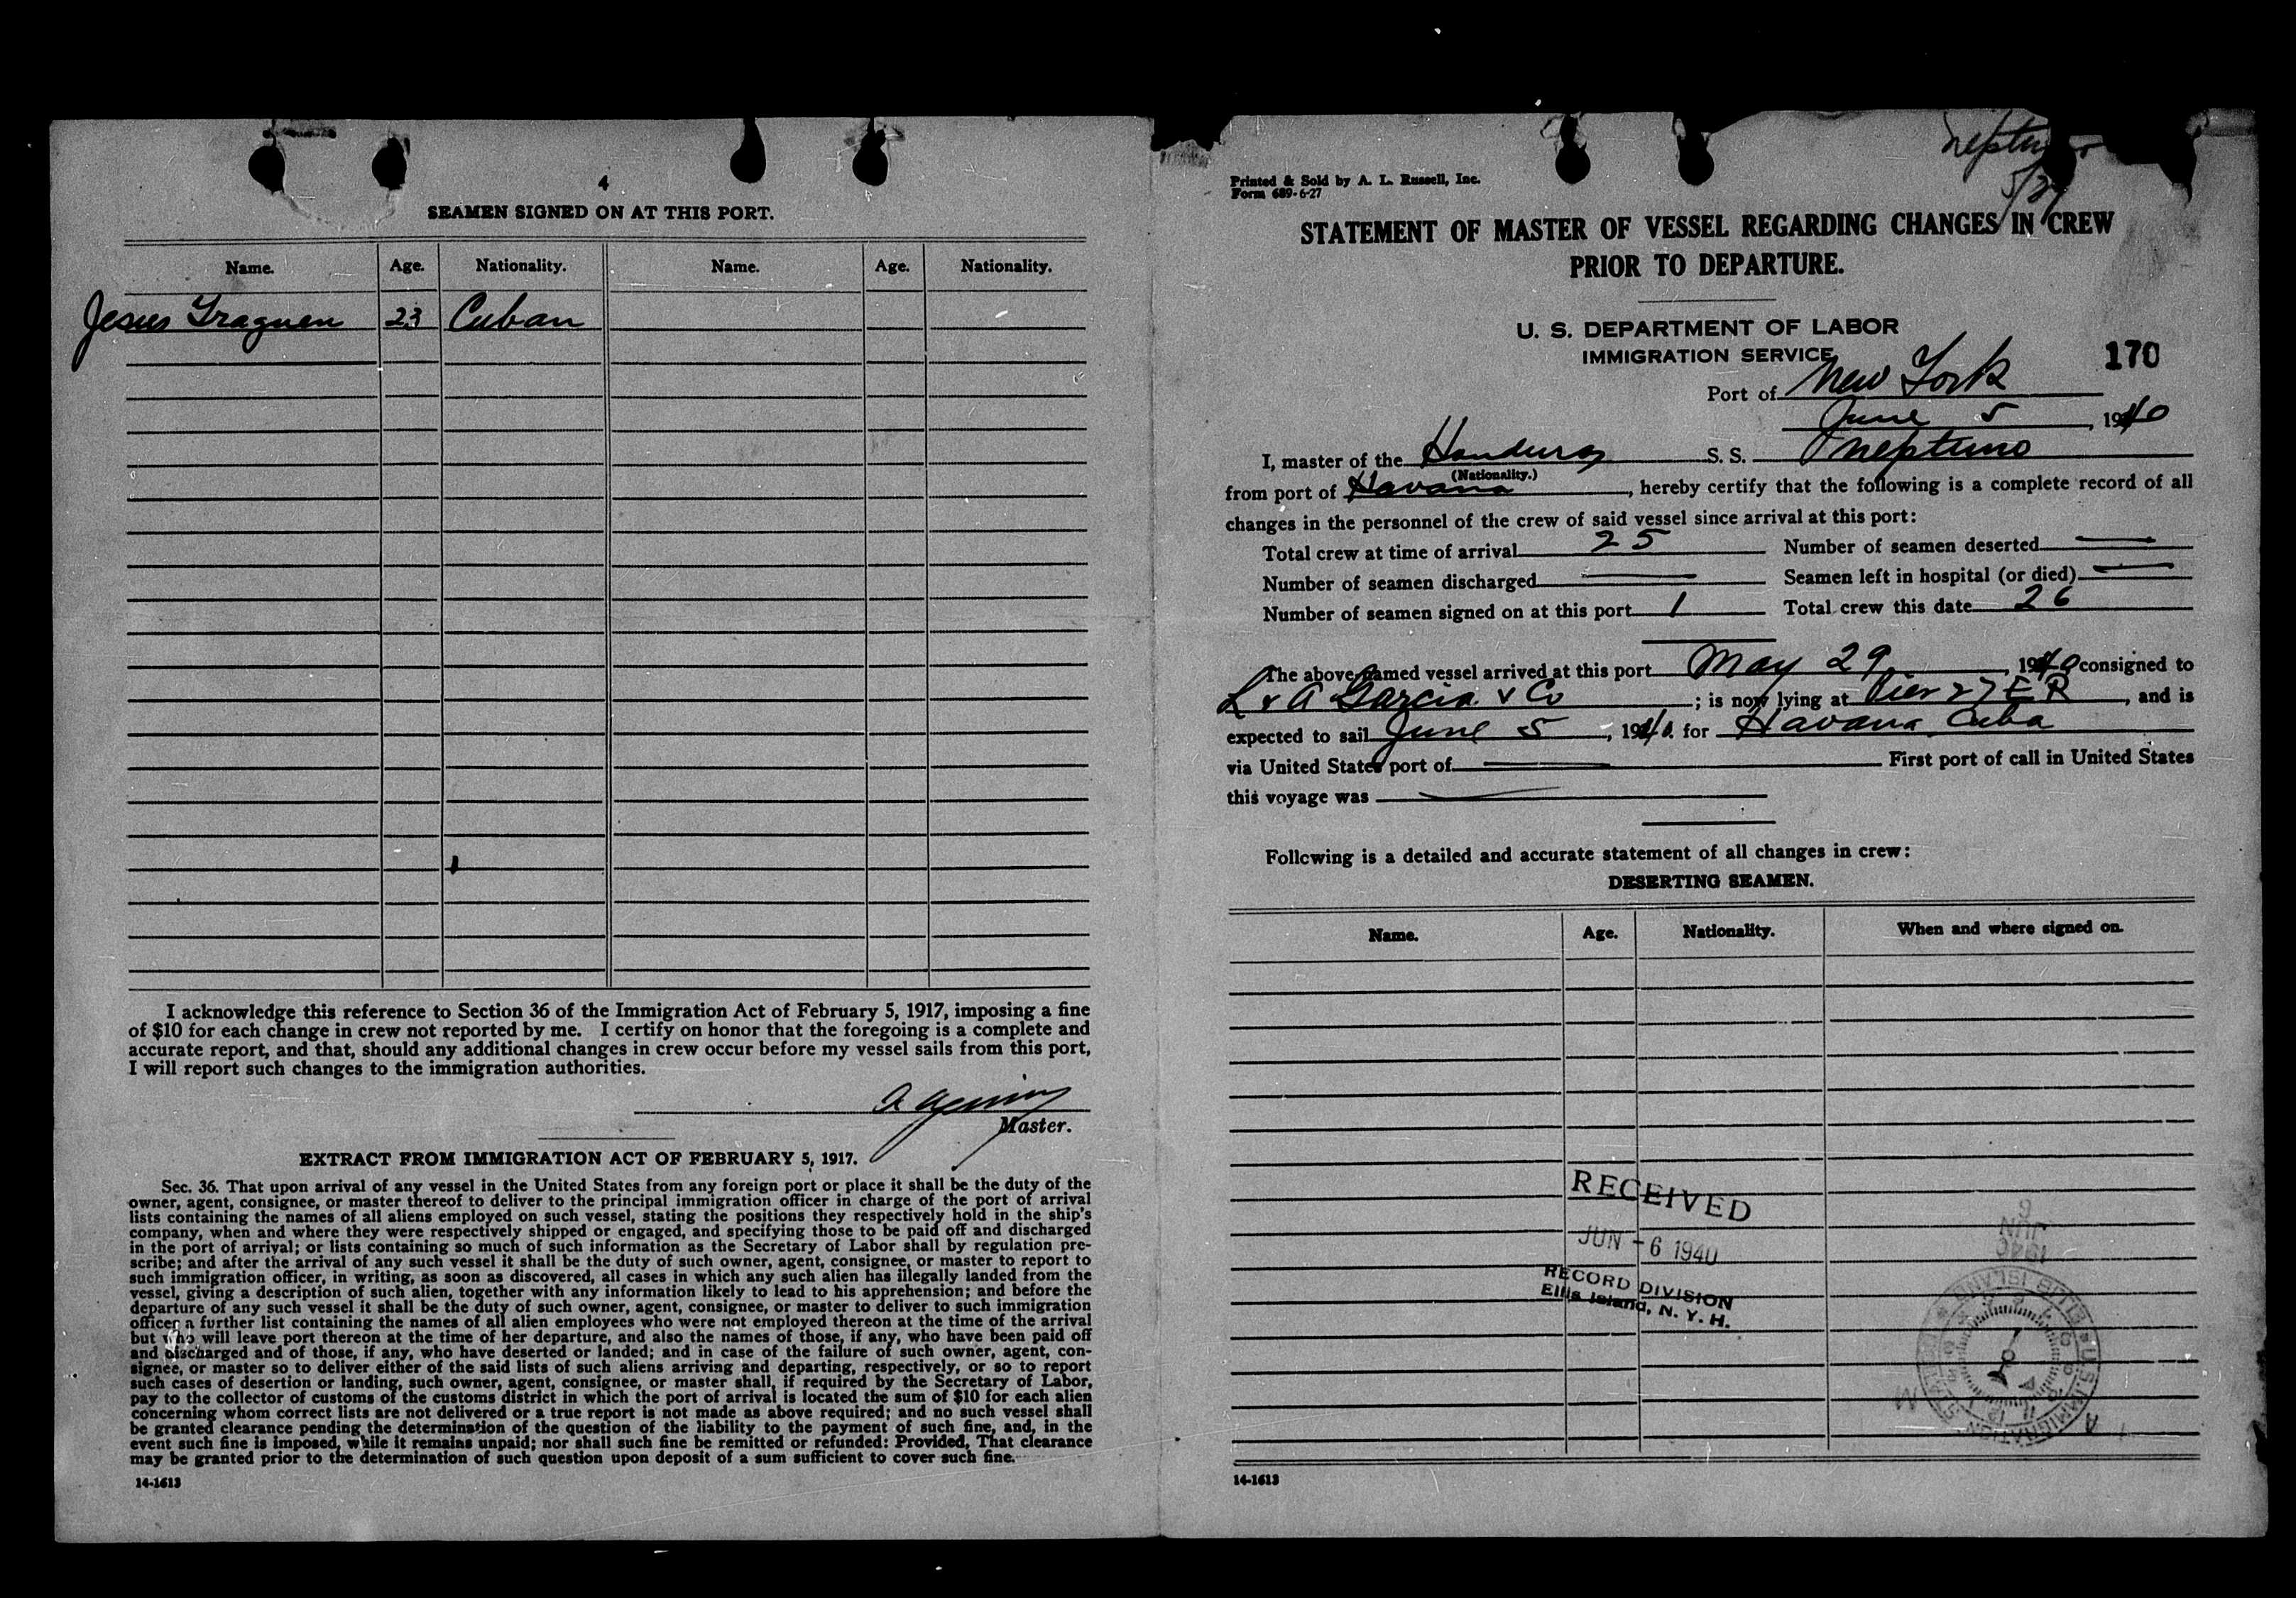 4
SEAMEN SIGNED ON AT THIS PORT.
Name. Age. Nationality. Name. Age. Nationality.
Jesus 23 Cuban
I acknowledge this reference to Section 36 of the Immigration Act of February 5, 1917, imposing a fine
of $10 for each change in crew not reported by me. I certify on honor that the foregoing is a complete and
accurate report, and that, should any additional changes in crew occur before my vessel sails from this port,
I will report such changes to the immigration authorities.
Master.
EXTRACT FROM IMMIGRATION ACT OF FEBRUARY 5, 1917.
Sec. 36. That upon arrival of any vessel in the United States from any foreign port or place it shall be the duty of the
owner, agent, consignee, or master thereof to deliver to the principal immigration officer in charge of the port of arrival
lists containing the names of all aliens employed on such vessel, stating the positions they respectively hold in the ship's
company, when and where they were respectively shipped or engaged, and specifying those to be paid off and discharged
in the port of arrival; or lists containing so much of such information as the Secretary of Labor shall by regulation pre-
scribe; and after the arrival of any such vessel it shall be the duty of such owner, agent, consignee, or master to report to
such immigration officer, in writing, as soon as discovered, all cases in which any such alien has illegally landed from the
vessel, giving a description of such alien, together with any information likely to lead to his apprehension; and before the
departure of any such vessel it shall be the duty of such owner, agent, consignee, or master to deliver to such immigration
officer a further list containing the names of all alien employees who were not employed thereon at the time of the arrival
but who will leave port thereon at the time of her departure, and also the names of those, if any, who have been paid off
and discharged and of those, if any, who have deserted or landed; and in case of the failure of such owner, agent, con-
signee, or master so to deliver either of the said lists of such aliens arriving and departing, respectively, or so to report
such cases of desertion or landing, such owner, agent, consignee, or master shall, if required by the Secretary of Labor,
pay to the collector of customs of the customs district in which the port of arrival is located the sum of $10 for each alien
concerning whom correct lists are not delivered or a true report is not made as above required; and no such vessel shall
be granted clearance pending the determination of the question of the liability to the payment of such fine, and, in the
event such fine is imposed, while it remains unpaid; nor shall such fine be remitted or refunded: Provided, That clearance
may be granted prior to the determination of such question upon deposit of a sum sufficient to cover such fine.
14-1613
Printed & Sold by A. L. Russell, Inc.
Form 689-6-27
STATEMENT OF MASTER OF VESSEL REGARDING CHANGES IN CREW
PRIOR TO DEPARTURE.
U. S. DEPARTMENT OF LABOR
IMMIGRATION SERVICE
170
Port of New York
June 5, 1940
I, master of the Honduras S. S. Neptuno
(Nationality.)
from port of Havana, hereby certify that the following is a complete record of all
changes in the personnel of the crew of said vessel since arrival at this port:
Total crew at time of arrival 25 Number of seamen deserted —
Number of seamen discharged — Seamen left in hospital (or died) —
Number of seamen signed on at this port 1 Total crew this date 26
The above-named vessel arrived at this port May 29, 1940 consigned to
L & A Garcia & Co; is now lying at Pier 27 E R, and is
expected to sail June 5, 1940 for Havana Cuba
via United States port of — First port of call in United States
this voyage was —
Following is a detailed and accurate statement of all changes in crew:
DESERTING SEAMEN.
Name. Age. Nationality. When and where signed on.
RECEIVED
JUN -6 1940
RECORD DIVISION
Ellis Island, N. Y. H.
1940
JUN
6
14-1613